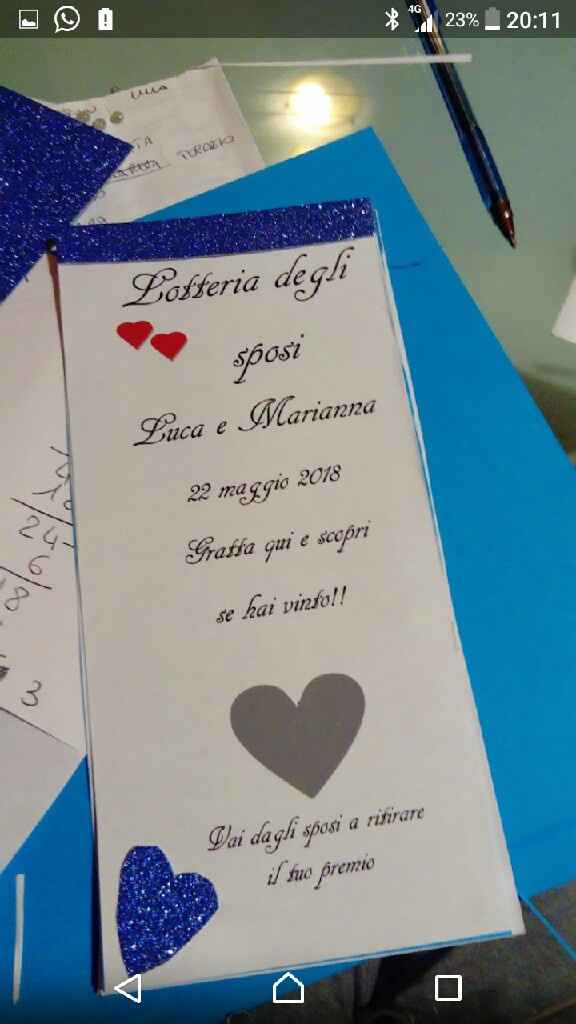 4G
23%
20:11
TORAZIO
Lotteria degli
sposi
Luca e Marianna
22 maggio 2018
Gratta qui e scopri
se hai vinto!!
Vai dagli sposi a ritirare
il tuo premio
24
6
8
3